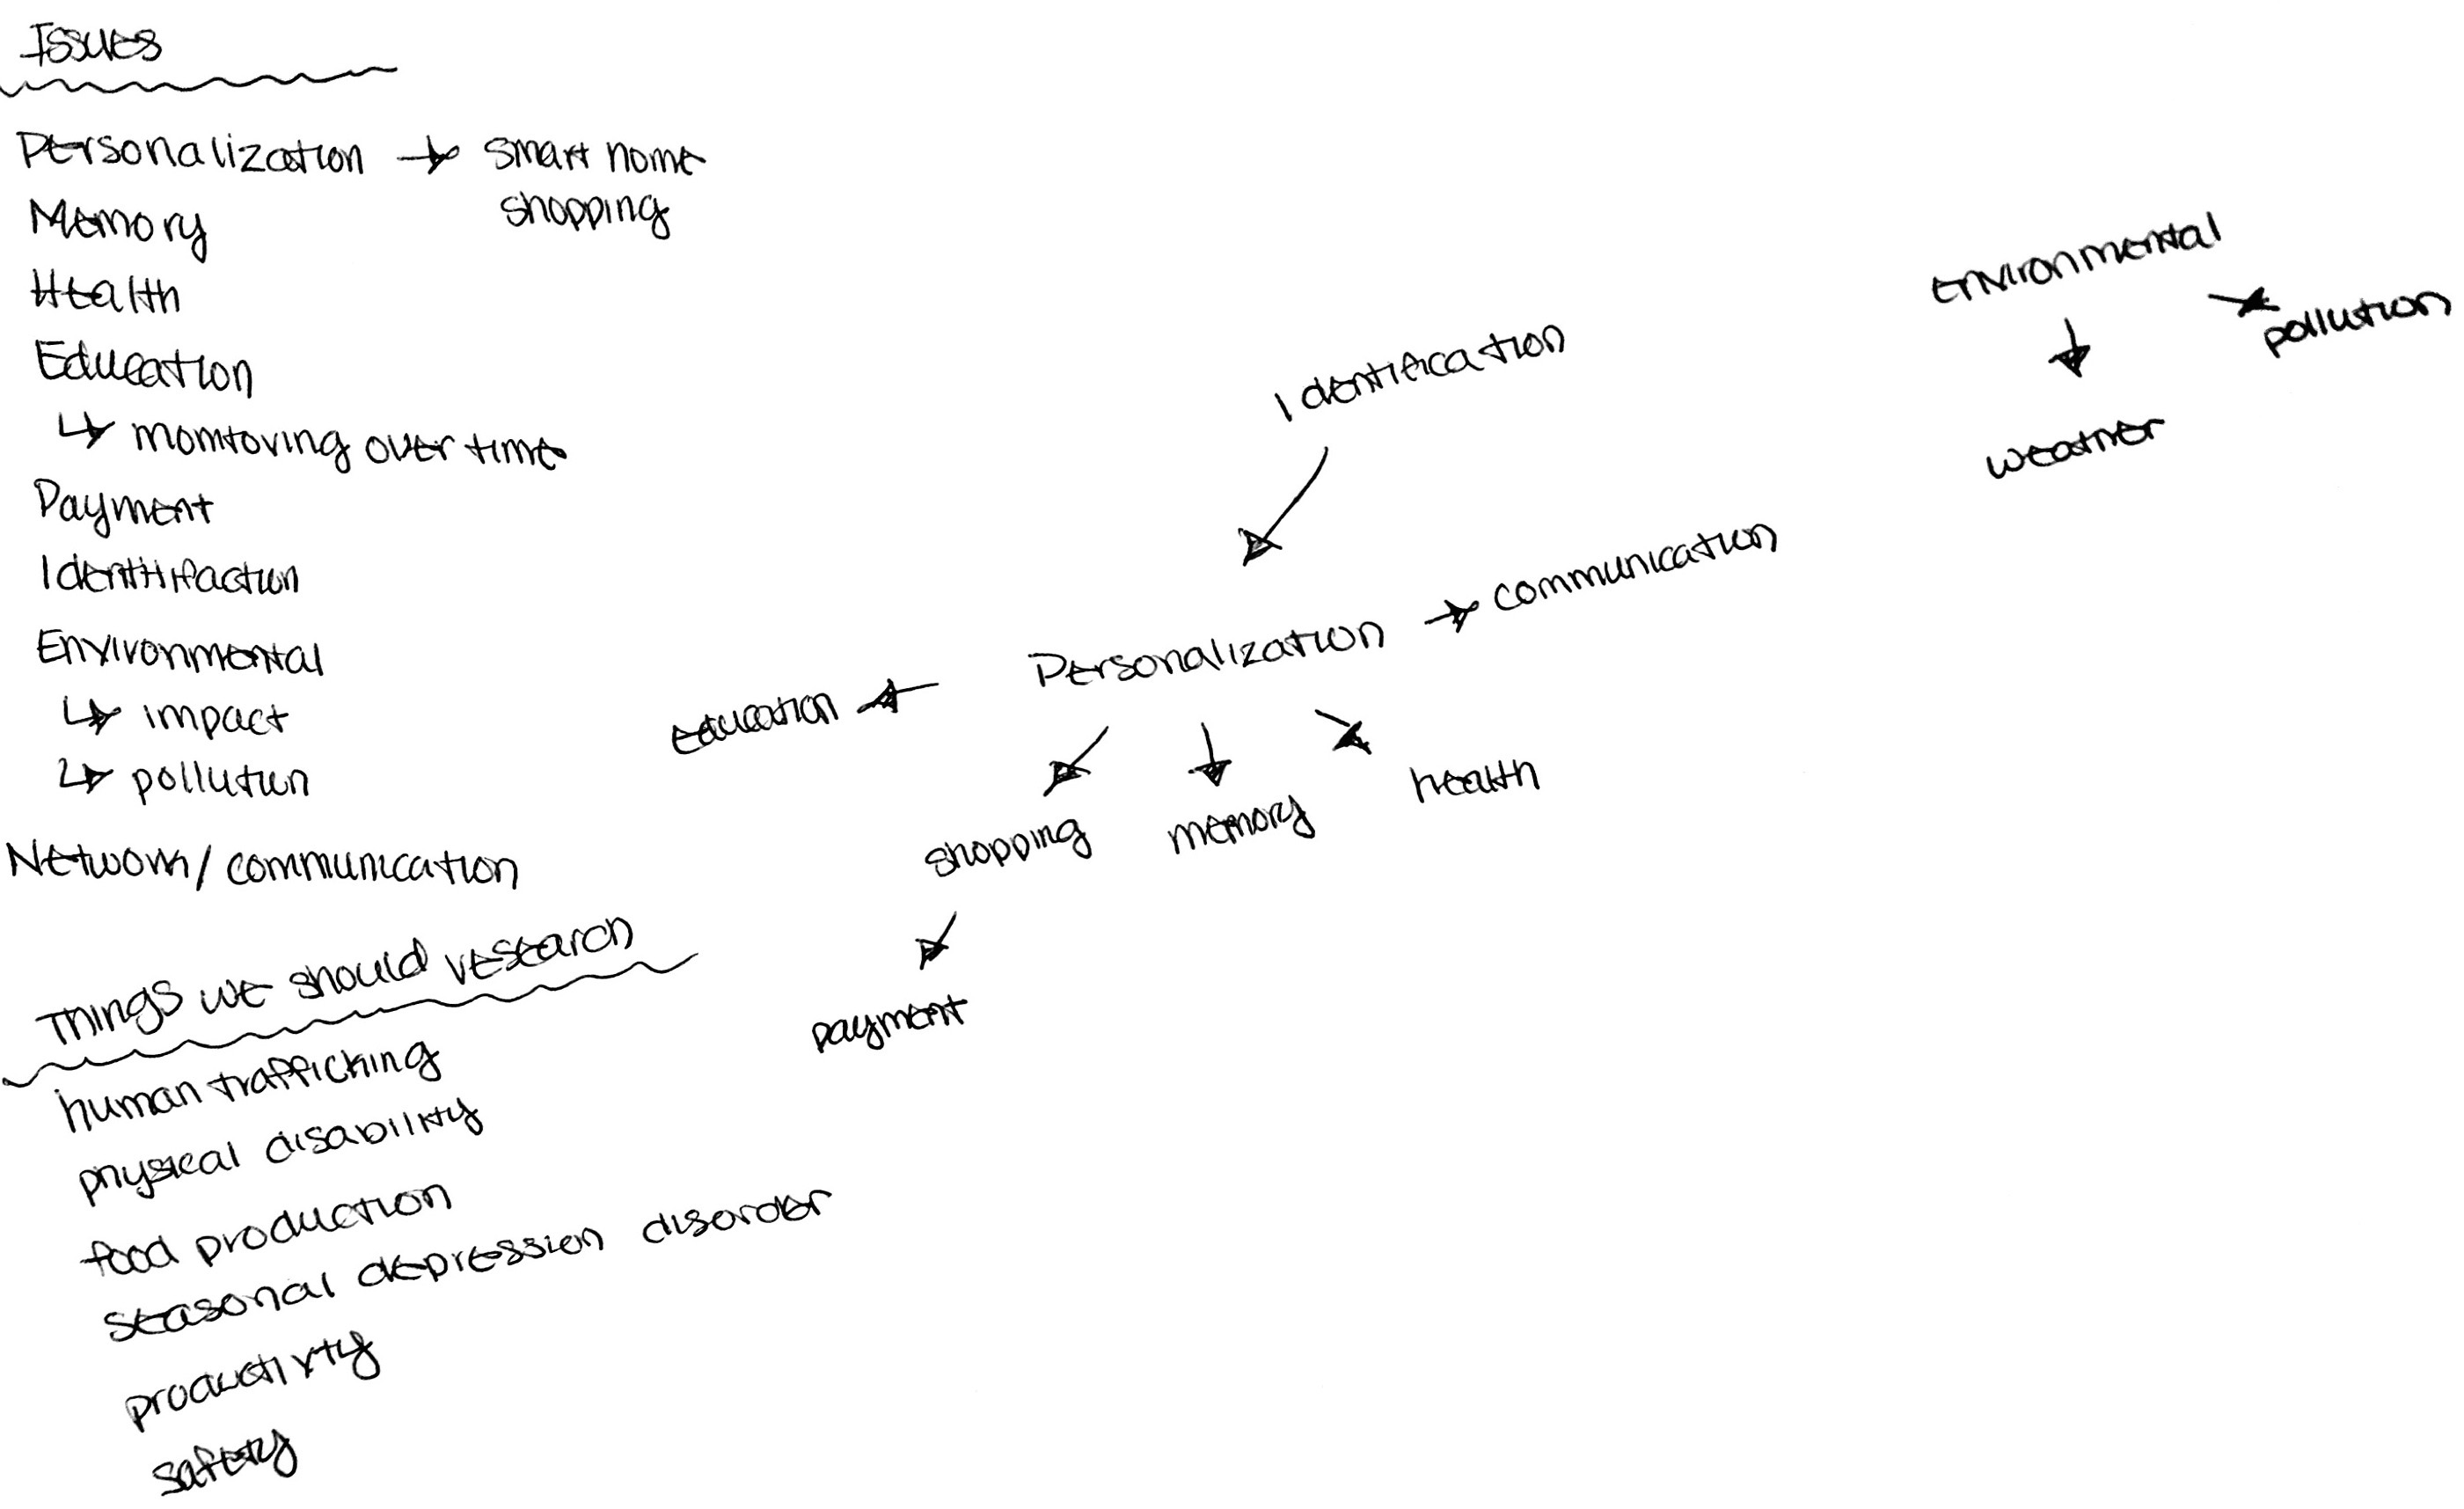 Issues
Personalization → smart home
shopping
Memory
Health
Education
↳ monitoring over time
Payment
Identitifaction
Environmental
↳ impact
↳ pollution
Network/communication
Things we should research
human trafficking
physical disability
food production
seasonal depression disorder
productivity
safety
Identification
Personalization → communication
education
shopping
memory
health
payment
environmental
pollution
weather